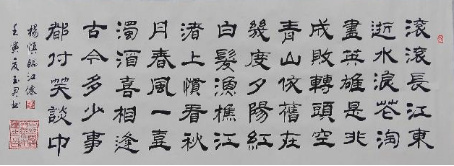 滾滾長江東
逝水浪花淘
盡英雄是非
成敗轉頭空
青山依舊在
幾度夕陽紅
白髮漁樵江
渚上慣看秋
月春風一壺
濁酒喜相逢
古今多少事
都付笑談中
楊慎臨江仙
壬寅夏玉